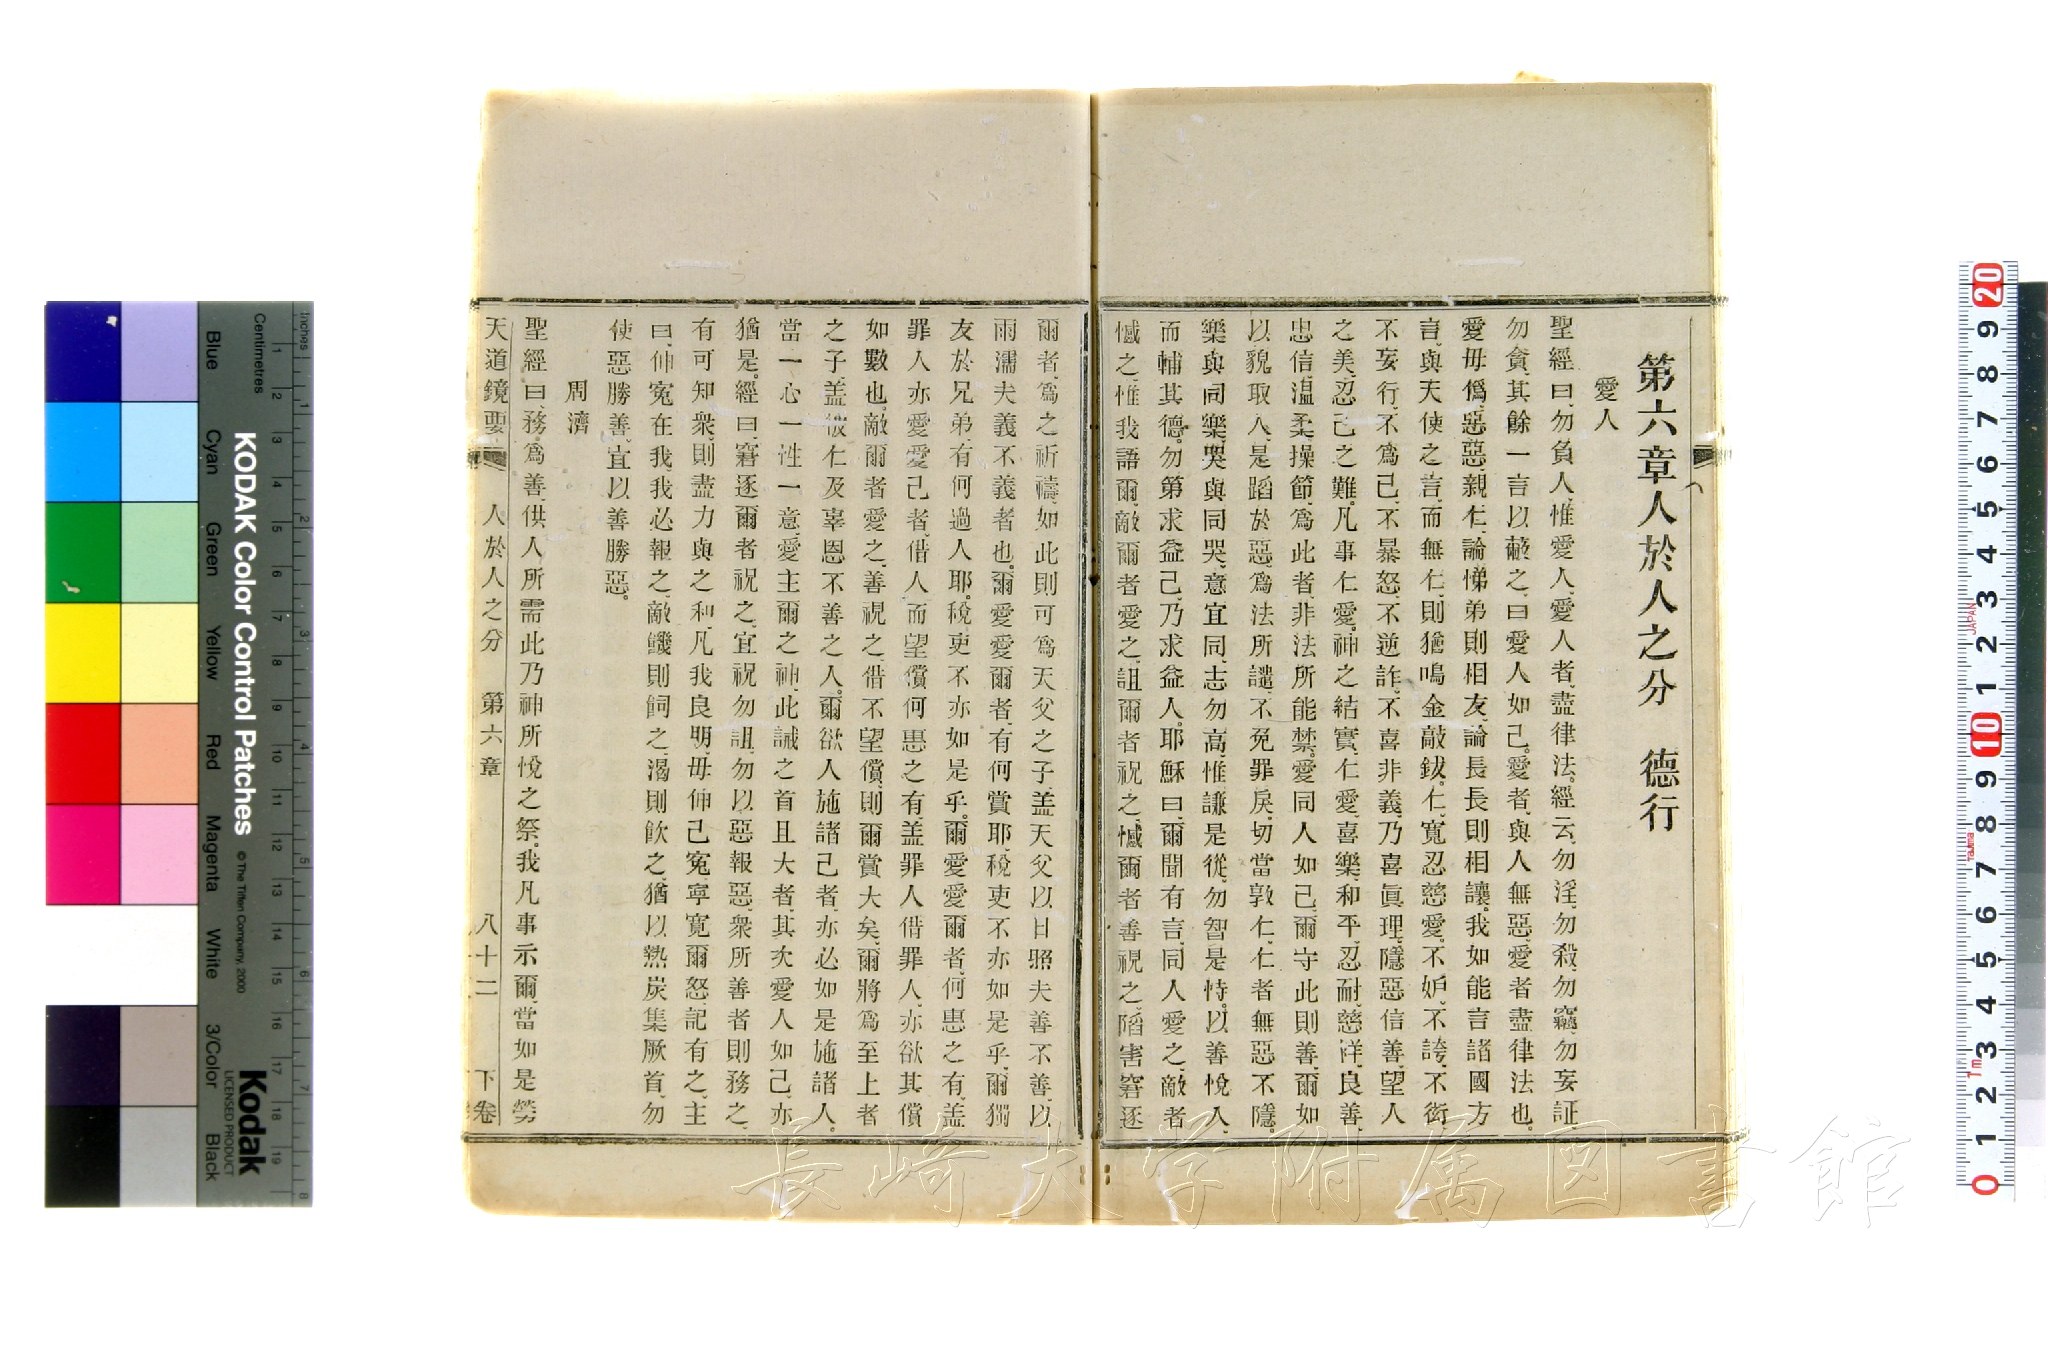 第六章人於人之分 德行
愛人
聖經曰、勿負人、惟愛人、愛人者、盡律法。經云、勿淫、勿殺、勿竊、勿妄証、
勿貪、其餘一言以蔽之、曰愛人如己。愛者、與人無惡、愛者盡律法也。
愛毋僞、惡惡、親仁、論悌弟則相友、論長長則相讓。我如能言諸國方
言、與天使之言、而無仁、則猶鳴金敲鈸、仁、寬忍慈愛、不妒、不誇、不衒、
不妄行、不爲己、不暴怒、不逆詐、不喜非義、乃喜眞理、隱惡信善、望人
之美、忍己之難。凡事仁愛。神之結實、仁愛、喜樂、和平、忍耐、慈祥、良善、
忠信、溫柔、操節、爲此者、非法所能禁。愛同人如己、爾守此則善、爾如
以貌取人、是蹈於惡、爲法所譴、不免罪戾、切當敦仁、仁者無惡不隱。
樂與同樂、哭與同哭、意宜同、志勿高、惟謙是從、勿智是恃。以善悅人、
而輔其德。勿第求益己、乃求益人。耶穌曰、爾聞有言、同人愛之、敵者
憾之、惟我語爾、敵爾者愛之、詛爾者祝之、憾爾者善視之、陷害窘逐
爾者、爲之祈禱、如此則可爲天父之子、盖天父以日照夫善不善、以
雨濡夫義不義者也。爾愛愛爾者、有何賞耶、稅吏不亦如是乎、爾獨
友於兄弟、有何過人耶。稅吏不亦如是乎。爾愛愛爾者、何患之有、盖
罪人亦愛愛己者、借人而望償、何患之有、盖罪人借罪人、亦欲其償
如數也、敵爾者愛之、善視之、借不望償、則爾賞大矣、爾將爲至上者
之子、盖彼仁及辜恩不善之人。爾欲人施諸己者、亦必如是施諸人。
當一心一性一意、愛主爾之神、此誡之首且大者、其次愛人如己、亦
猶是。經曰、窘逐爾者祝之、宜祝勿詛、勿以惡報惡、衆所善者則務之、
有可知衆、則盡力與之和、凡我良朋、毋伸己寃、寧寬爾怒、記有之、主
曰、伸寃在我、我必報之、敵饑則飼之、渴則飲之、猶以熱炭集厥首、勿
使惡勝善、宜以善勝惡。
周濟
聖經曰、務爲善、供人所需、此乃神所悅之祭。我凡事示爾、當如是勞
天道鏡要 人於人之分 第六章 八十二 下卷
長崎大学附属図書館
KODAK Color Control Patches
© The Tiffen Company, 2000
Kodak
LICENSED PRODUCT
Inches
Centimetres
Blue
Cyan
Green
Yellow
Red
Magenta
White
3/Color
Black